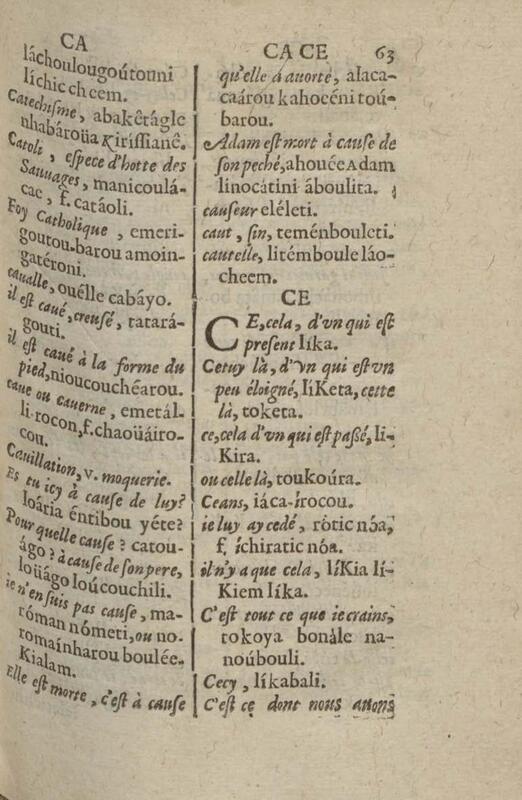 CA
láchoulougoútouni
líchic cheem.
Catechisme, abakêtágle
nhabároüa Kirissianê.
Catoli, espece d'hotte des
Sauvages, manicoulá-
cae, f. catáoli.
Foy Catholique, emeri-
goutou-barou amoin-
gatéroni.
caualle, ouélle cabáyo.
il est caué, creusé, tatará-
gouti.
il est caué à la forme du
pied, nioucouchéarou.
caue ou cauerne, emetál-
li-rocon, f. chaoüáiro-
cou.
Cauillation, v. moquerie.
Es tu icy à cause de luy?
loária éntibou yéte?
Pour quelle cause? catou-
ágo? à cause de son pere,
loüágo loúcouchili.
ie n'en suis pas cause, ma-
róman nómeti, ou no-
romaínharou boulée.
Kialam.
Elle est morte, c'est à cause
CA CE 63
qu'elle á auorté, alaca-
caárou kahocéni toú-
barou.
Adam est mort à cause de
son peché, ahouée Adam
linocátini áboulita.
causeur eléleti.
caut, fin, teménbouleti.
cautelle, litémboule láo-
cheem.
CE
CE, cela, d'vn qui est
present líka.
Cetuy là, d'vn qui est vn
peu éloigné, líKeta, cette
là, toketa.
ce, cela d'vn qui est passé, li-
Kira.
ou celle là, toukoúra.
Ceans, iáca-írocou.
ie luy ay cedé, ròtic nóa,
f. íchiratic nóa.
il n'y a que cela, líKia lí-
Kiem líka.
C'est tout ce que ie crains,
tokoya bonále na-
noúbouli.
Cecy, líkabali.
C'est ce dont nous auons